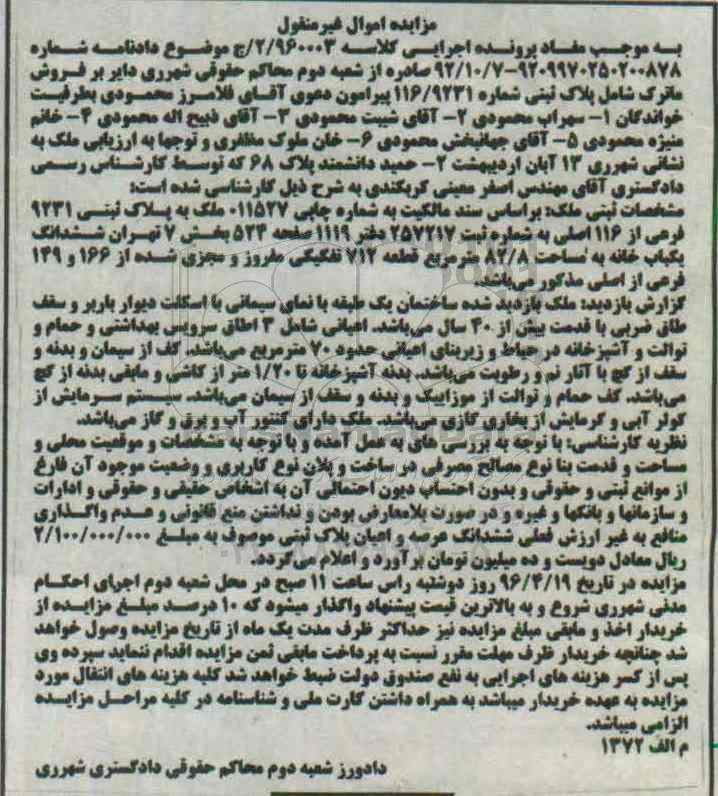 مزایده اموال غیرمنقول
به موجب مفاد پرونده اجرایی کلاسه ۲/۹۶۰۰۰۳/ج موضوع دادنامه شماره
۹۲۰۹۹۷۰۲۵۰۲۰۰۸۷۸-۹۲/۱۰/۷ صادره از شعبه دوم محاکم حقوقی شهرری دایر بر فروش
ماترک شامل پلاک ثبتی شماره ۱۱۶/۹۲۳۱ پیرامون دعوی آقای فلامرز محمودی بطرفیت
خواندگان ۱- سهراب محمودی ۲- آقای شیبت محمودی ۳- آقای ذبیح اله محمودی ۴- خانم
منیژه محمودی ۵- آقای جهانبخش محمودی ۶- خان ملوک مظفری و توجها به ارزیابی ملک به
نشانی شهرری ۱۳ آبان اردیبهشت ۲- حمید دانشمند پلاک ۶۸ که توسط کارشناس رسمی
دادگستری آقای مهندس اصغر معینی کریکندی به شرح ذیل کارشناسی شده است:
مشخصات ثبتی ملک: براساس سند مالکیت به شماره چاپی ۰۱۱۵۲۷ ملک به پلاک ثبتی ۹۲۳۱
فرعی از ۱۱۶ اصلی به شماره ثبت ۲۵۷۲۱۷ دفتر ۱۱۱۹ صفحه ۵۲۴ بخش ۷ تهران ششدانگ
یکباب خانه به مساحت ۸۲/۸ مترمربع قطعه ۷۱۲ تفکیکی مفروز و مجزی شده از ۱۶۶ و ۱۴۹
فرعی از اصلی مذکور می‌باشد.
گزارش بازدید: ملک بازدید شده ساختمان یک طبقه با نمای سیمانی با اسکلت دیوار باربر و سقف
طاق ضربی با قدمت بیش از ۴۰ سال می‌باشد. اعیانی شامل ۳ اطاق سرویس بهداشتی و حمام و
توالت و آشپزخانه در حیاط و زیربنای اعیانی حدود ۷۰ مترمربع می‌باشد. کف از سیمان و بدنه و
سقف از گچ با آثار نم و رطوبت می‌باشد. بدنه آشپزخانه تا ۱/۲۰ متر از کاشی و مابقی بدنه از گچ
می‌باشد. کف حمام و توالت از موزاییک و بدنه و سقف از سیمان می‌باشد. سیستم سرمایش از
کولر آبی و گرمایش از بخاری گازی می‌باشد. ملک دارای کنتور آب و برق و گاز می‌باشد.
نظریه کارشناسی: با توجه به بررسی های به عمل آمده و با توجه به مشخصات و موقعیت محلی و
مساحت و قدمت بنا نوع مصالح مصرفی در ساخت و پلان نوع کاربری و وضعیت موجود آن فارغ
از موانع ثبتی و حقوقی و بدون احتساب دیون احتمالی آن به اشخاص حقیقی و حقوقی و ادارات
و سازمانها و بانکها و غیره و در صورت بلامعارض بودن و نداشتن منع قانونی و عدم واگذاری
منافع به غیر ارزش فعلی ششدانگ عرصه و اعیان پلاک ثبتی موصوف به مبلغ ۲/۱۰۰/۰۰۰/۰۰۰
ریال معادل دویست و ده میلیون تومان برآورد و اعلام می‌گردد.
مزایده در تاریخ ۹۶/۴/۱۹ روز دوشنبه راس ساعت ۱۱ صبح در محل شعبه دوم اجرای احکام
مدنی شهرری شروع و به بالاترین قیمت پیشنهاد واگذار میشود که ۱۰ درصد مبلغ مزایده از
خریدار اخذ و مابقی مبلغ مزایده نیز حداکثر ظرف مدت یک ماه از تاریخ مزایده وصول خواهد
شد چنانچه خریدار ظرف مهلت مقرر نسبت به پرداخت مابقی ثمن مزایده اقدام ننماید سپرده وی
پس از کسر هزینه های اجرایی به نفع صندوق دولت ضبط خواهد شد کلیه هزینه های انتقال مورد
مزایده به عهده خریدار میباشد به همراه داشتن کارت ملی و شناسنامه در کلیه مراحل مزایده
الزامی میباشد.
م الف ۱۳۷۲
دادورز شعبه دوم محاکم حقوقی دادگستری شهرری